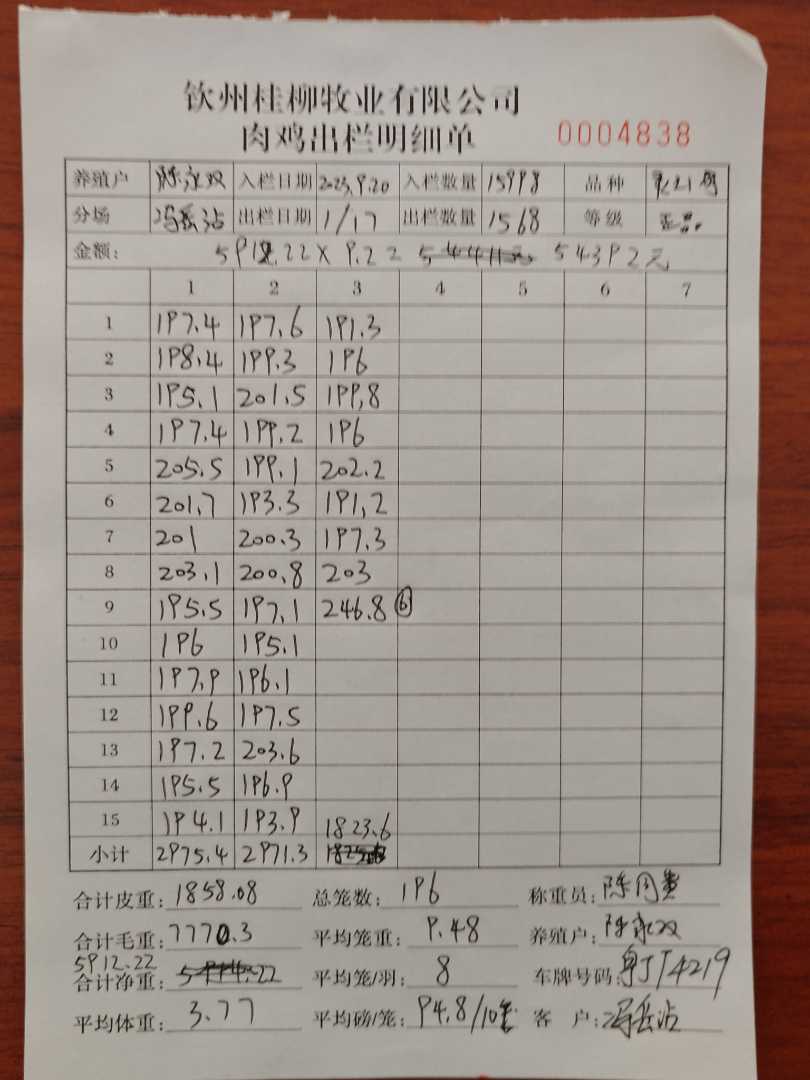 钦州桂柳牧业有限公司
肉鸡出栏明细单 0004838
养殖户 陈永双 入栏日期 2023.9.20 入栏数量 15998 品种
分场 冯岳沾 出栏日期 1/17 出栏数量 1568 等级 正品.
金额: 5912.22 X 9.2 = 54392元
1 2 3 4 5 6 7
1 197.4 197.6 191.3
2 198.4 199.3 196
3 195.1 201.5 199.8
4 197.4 199.2 196
5 205.5 199.1 202.2
6 201.7 193.3 191.2
7 201 200.3 197.3
8 203.1 200.8 203
9 195.5 197.1 246.8 ⑥
10 196 195.1
11 197.9 196.1
12 199.6 197.5
13 197.2 203.6
14 195.5 196.9
15 194.1 193.9 1823.6
小计 2975.4 2971.3
合计皮重: 1858.08 总笼数: 196 称重员:
合计毛重: 7770.3 平均笼重: 9.48 养殖户: 陈永双
5912.22
合计净重: 平均笼/羽: 8 车牌号码: 粤J T4219
平均体重: 3.77 平均磅/笼: 94.8/10 客 户: 冯岳沾